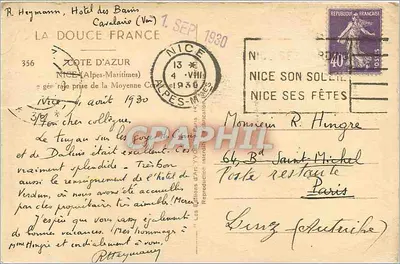 R. Heymann, Hôtel des Bains
Cavalaire (Var)
1 SEPT 1930
LA DOUCE FRANCE
356
CÔTE D'AZUR
NICE (Alpes-Maritimes)
prise de la Moyenne Co
NICE
13
4 - VIII
1930
ALPES-Mmes
NICE SON SOLEIL
NICE SES FÊTES
REPUBLIQUE FRANÇAISE
40c
Nice, août 1930
Mon cher collègue,
Le tuyau sur les
et de était excellent. C'est
vraiment splendide. Très bon
aussi le renseignement de l'hôtel de
Verdun, où nous avons été accueillis
par des propriétaires très aimables! Merci.
J'espère que vous avez également
de bonnes vacances. Mes hommages à
Mme Hingre et cordialement à vous.
R Heymann
Monsieur R. Hingre
64, Bd Saint-Michel
Poste restante
Paris
Linz (Autriche)
CPAPHIL.COM